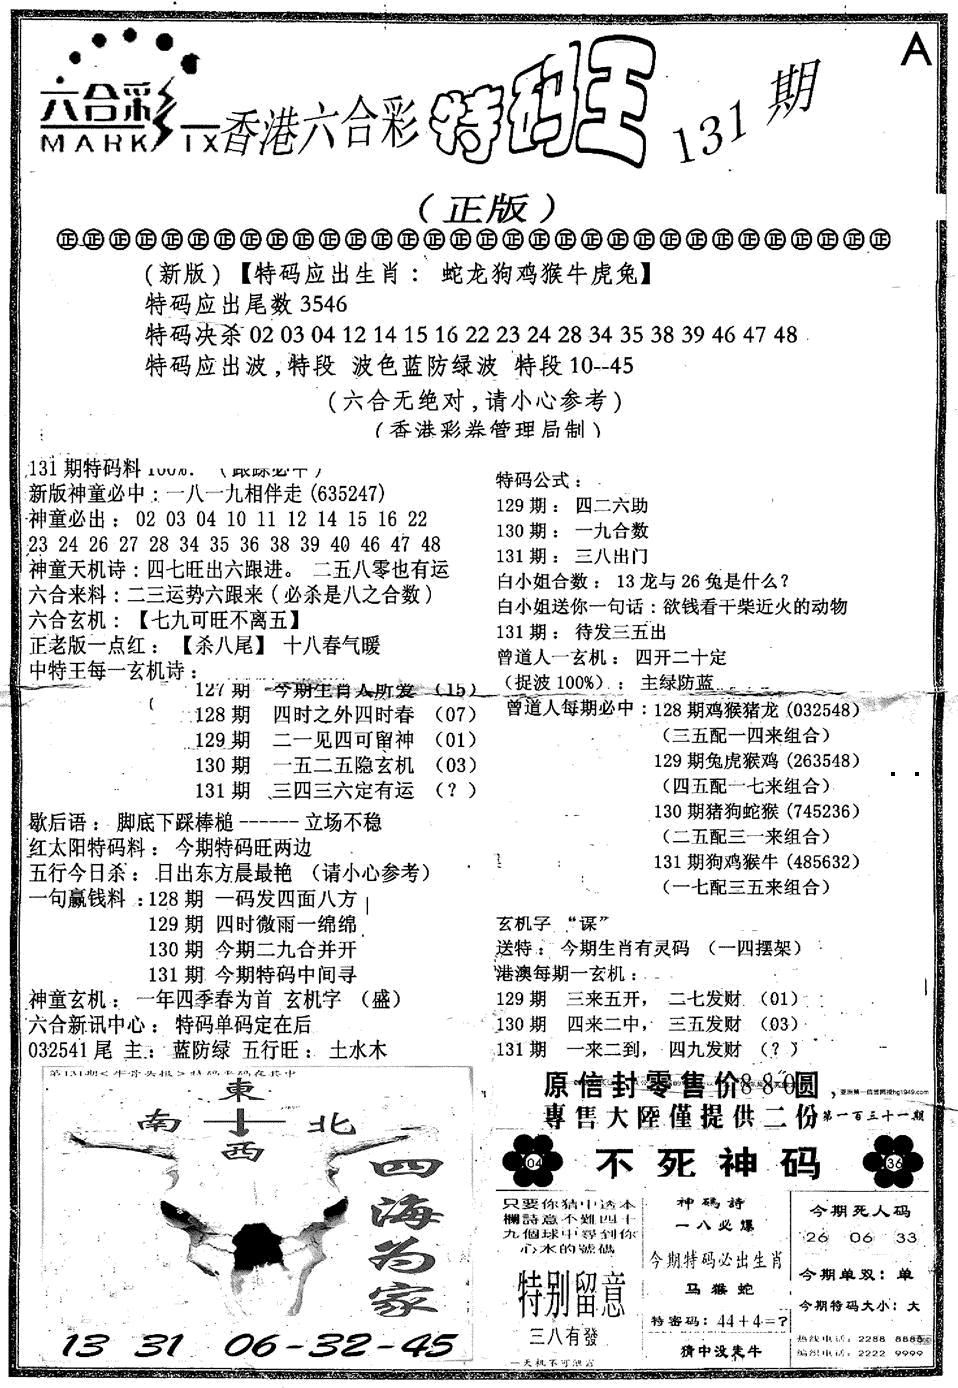 A
六合彩
MARK IX
香港六合彩 特码王 131期
（正版）
正正正正正正正正正正正正正正正正正正正正正正正正正正正正正正正正
(新版)【特码应出生肖： 蛇龙狗鸡猴牛虎兔】
特码应出尾数 3546
特码决杀 02 03 04 12 14 15 16 22 23 24 28 34 35 38 39 46 47 48
特码应出波,特段 波色蓝防绿波 特段 10--45
(六合无绝对,请小心参考)
(香港彩券管理局制)
131 期特码料 100%. (跟踪必中)
新版神童必中:一八一九相伴走(635247)
神童必出： 02 03 04 10 11 12 14 15 16 22
23 24 26 27 28 34 35 36 38 39 40 46 47 48
神童天机诗:四七旺出六跟进。 二五八零也有运
六合来料:二三运势六跟来(必杀是八之合数)
六合玄机：【七九可旺不离五】
正老版一点红：【杀八尾】 十八春气暖
中特王每一玄机诗:
127 期 今期生肖人所爱 (15)
128 期 四时之外四时春 (07)
129 期 二一见四可留神 (01)
130 期 一五二五隐玄机 (03)
131 期 三四三六定有运 (?)
歇后语：脚底下踩棒槌------立场不稳
红太阳特码料： 今期特码旺两边
五行今日杀： 日出东方晨最艳 (请小心参考)
一句赢钱料:128 期 一码发四面八方
129 期 四时微雨一绵绵
130 期 今期二九合并开
131 期 今期特码中间寻
神童玄机： 一年四季春为首 玄机字 (盛)
六合新讯中心： 特码单码定在后
032541 尾 主： 蓝防绿 五行旺： 土水木
特码公式：
129 期： 四二六助
130 期： 一九合数
131 期： 三八出门
白小姐合数：13 龙与 26 兔是什么?
白小姐送你一句话:欲钱看干柴近火的动物
131 期： 待发三五出
曾道人一玄机： 四开二十定
(捉波 100%)： 主绿防蓝
曾道人每期必中:128 期鸡猴猪龙(032548)
(三五配一四来组合)
129 期兔虎猴鸡(263548)
(四五配一七来组合)
130 期猪狗蛇猴(745236)
(二五配三一来组合)
131 期狗鸡猴牛(485632)
(一七配三五来组合)
玄机字 “谋”
送特： 今期生肖有灵码 (一四摆架)
港澳每期一玄机:
129 期 三来五开, 二七发财 (01)
130 期 四来二中, 三五发财 (03)
131 期 一来二到, 四九发财 (?)
東
南 北
西
四海为家
13 31 06-32-45
原信封零售价880圆,
專售大陸僅提供二份 第一百三十一期
04 不死神码 36
只要你猜中透本
欄詩意不難四十
九個球中尋到你
心水的號碼
特别留意
三八有發
天机不可泄言
神码詩
一八必爆
今期特码必出生肖
马猴蛇
特密码: 44+4=?
猜中没走牛
今期死人码
26 06 33
今期单双: 单
今期特码大小: 大
热线电话: 2288 8888
编织电话: 2222 9999